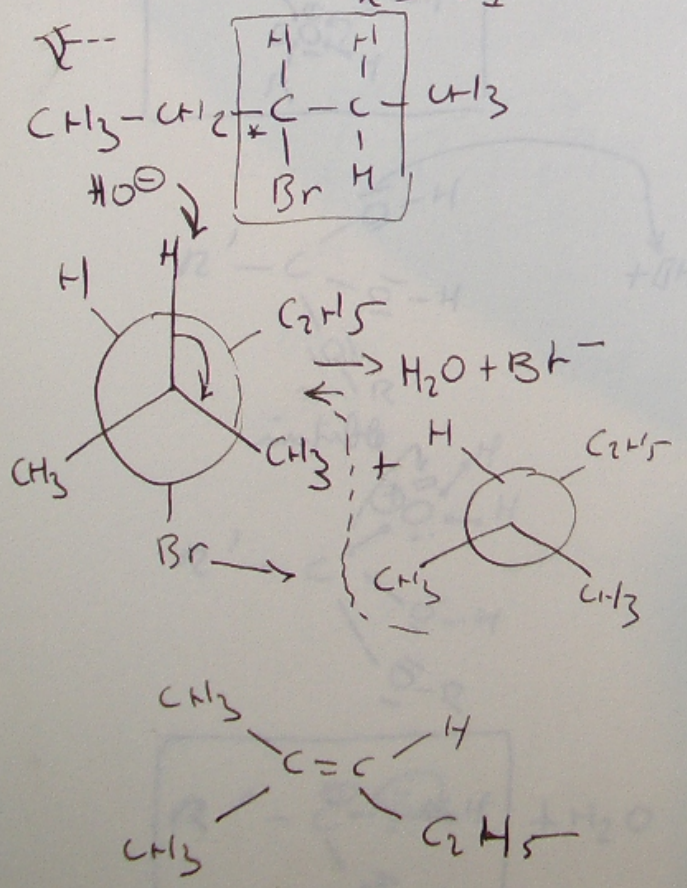 H H
CH3 - CH2 - C - C - CH3
*
Br H
HO⊖
H
H
C2H5
H2O + Br⁻
CH3 CH3
+
H C2H5
Br
CH3 CH3
CH3 H
C = C
CH3 C2H5